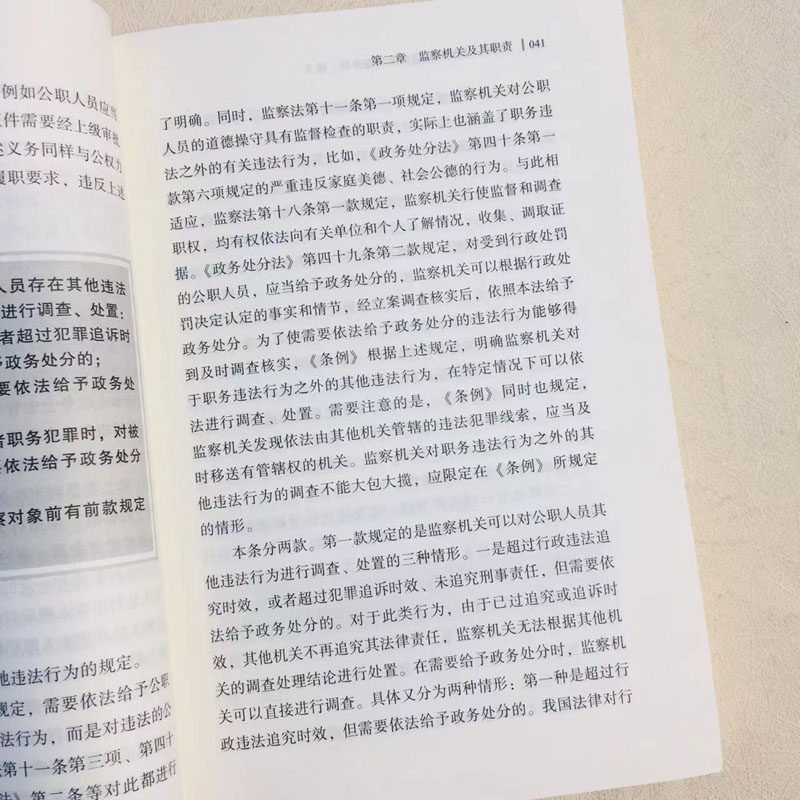 例如公职人员应当
件需要经上级审批
义务同样与公权力
履职要求，违反上述
人员存在其他违法
进行调查、处置：
者超过犯罪追诉时
予政务处分的；
要依法给予政务处
者职务犯罪时，对被
要依法给予政务处分
察对象前有前款规定
他违法行为的规定。
规定，需要依法给予公职
法行为，而是对违法的公
法第十一条第三项、第四十
法》第二条等对此都进行
第二章 监察机关及其职责 041
了明确。同时，监察法第十一条第一项规定，监察机关对公职
人员的道德操守具有监督检查的职责，实际上也涵盖了职务违
法之外的有关违法行为，比如，《政务处分法》第四十条第一
款第六项规定的严重违反家庭美德、社会公德的行为。与此相
适应，监察法第十八条第一款规定，监察机关行使监督和调查
职权，均有权依法向有关单位和个人了解情况，收集、调取证
据。《政务处分法》第四十九条第二款规定，对受到行政处罚
的公职人员，应当给予政务处分的，监察机关可以根据行政处
罚决定认定的事实和情节，经立案调查核实后，依照本法给予
政务处分。为了使需要依法给予政务处分的违法行为能够得
到及时调查核实，《条例》根据上述规定，明确监察机关对
于职务违法行为之外的其他违法行为，在特定情况下可以依
法进行调查、处置。需要注意的是，《条例》同时也规定，
监察机关发现依法由其他机关管辖的违法犯罪线索，应当及
时移送有管辖权的机关。监察机关对职务违法行为之外的其
他违法行为的调查不能大包大揽，应限定在《条例》所规定
的情形。
本条分两款。第一款规定的是监察机关可以对公职人员其
他违法行为进行调查、处置的三种情形。一是超过行政违法追
究时效，或者超过犯罪追诉时效、未追究刑事责任，但需要依
法给予政务处分的。对于此类行为，由于已过追究或追诉时
效，其他机关不再追究其法律责任，监察机关无法根据其他机
关的调查处理结论进行处置。在需要给予政务处分时，监察机
关可以直接进行调查。具体又分为两种情形：第一种是超过行
政违法追究时效，但需要依法给予政务处分的。我国法律对行